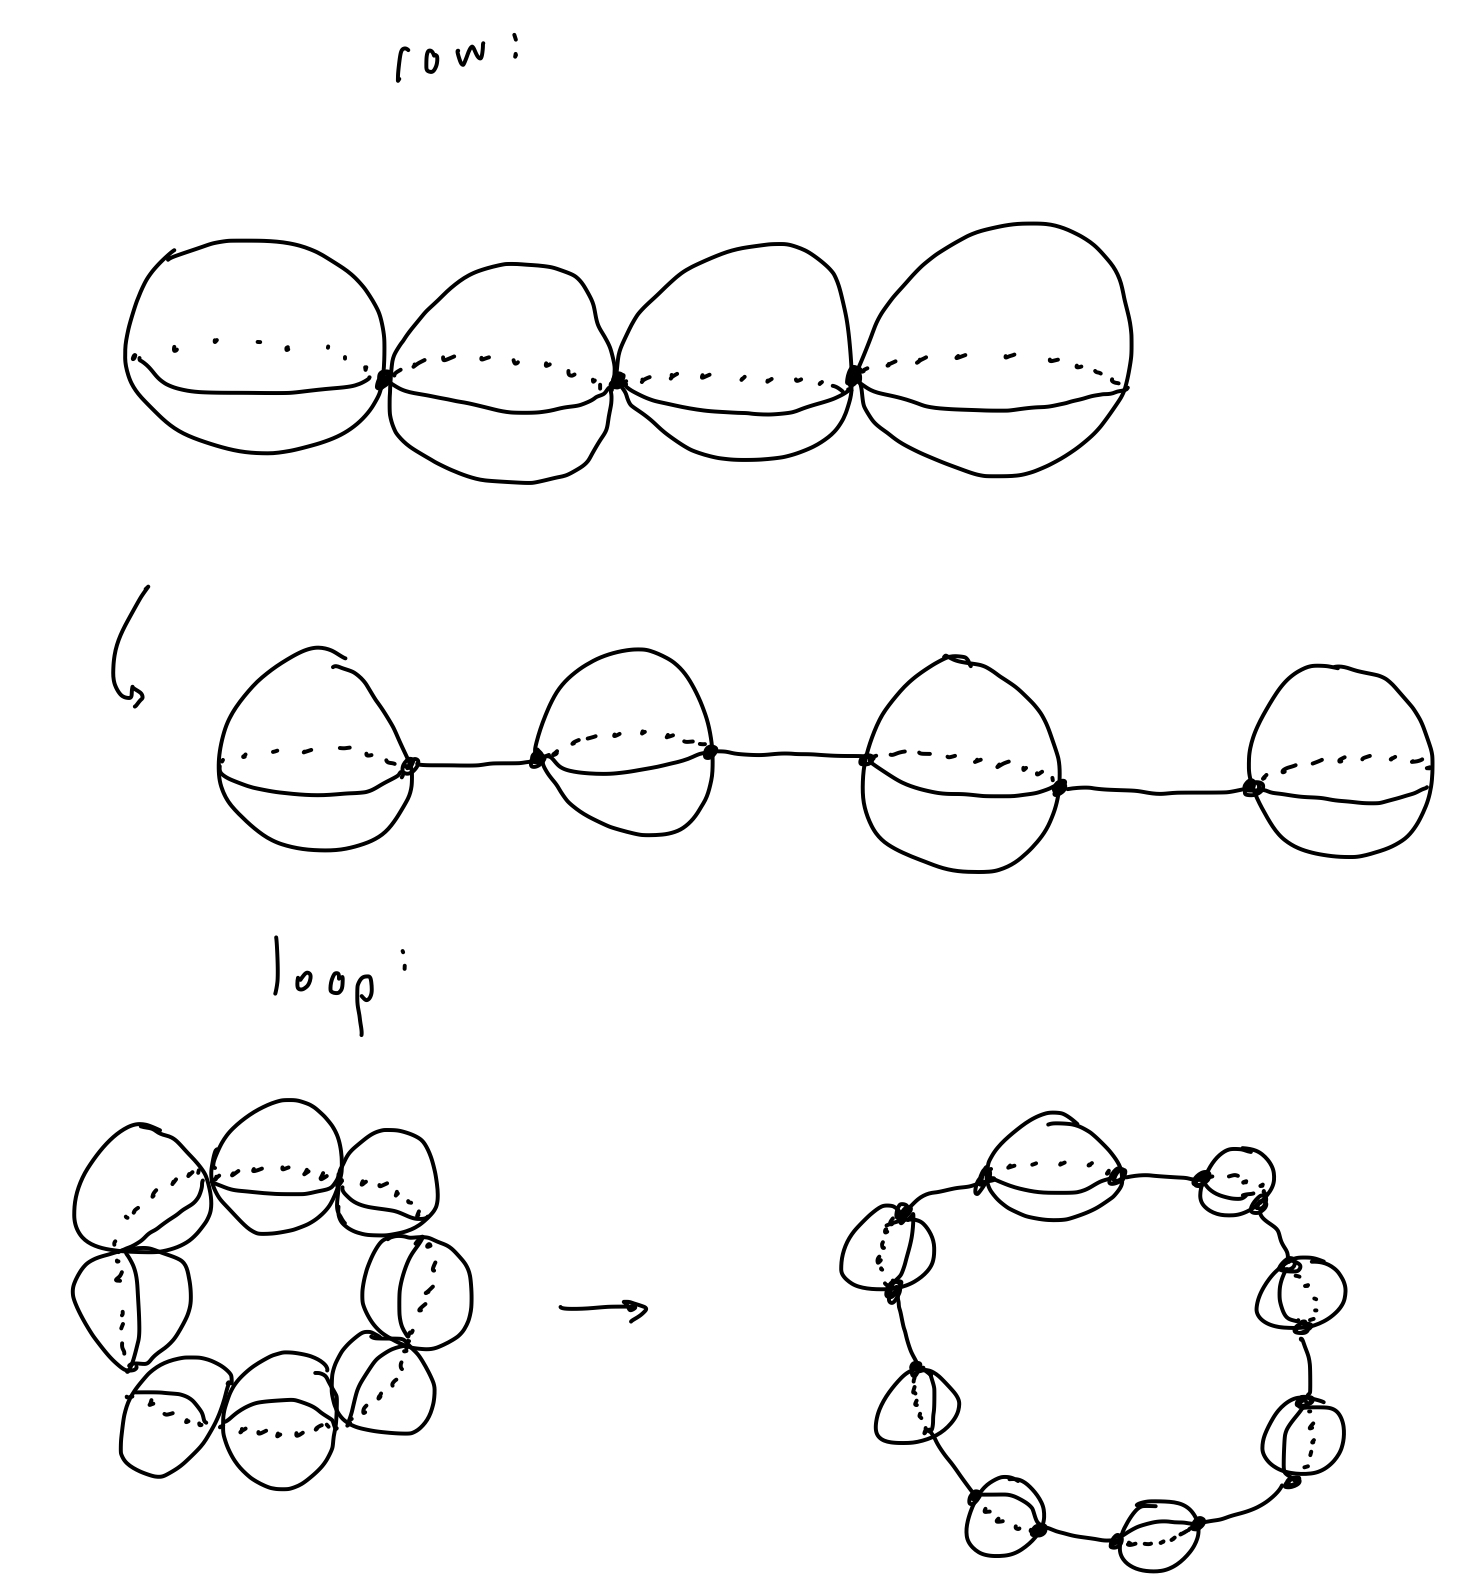 row:
loop: